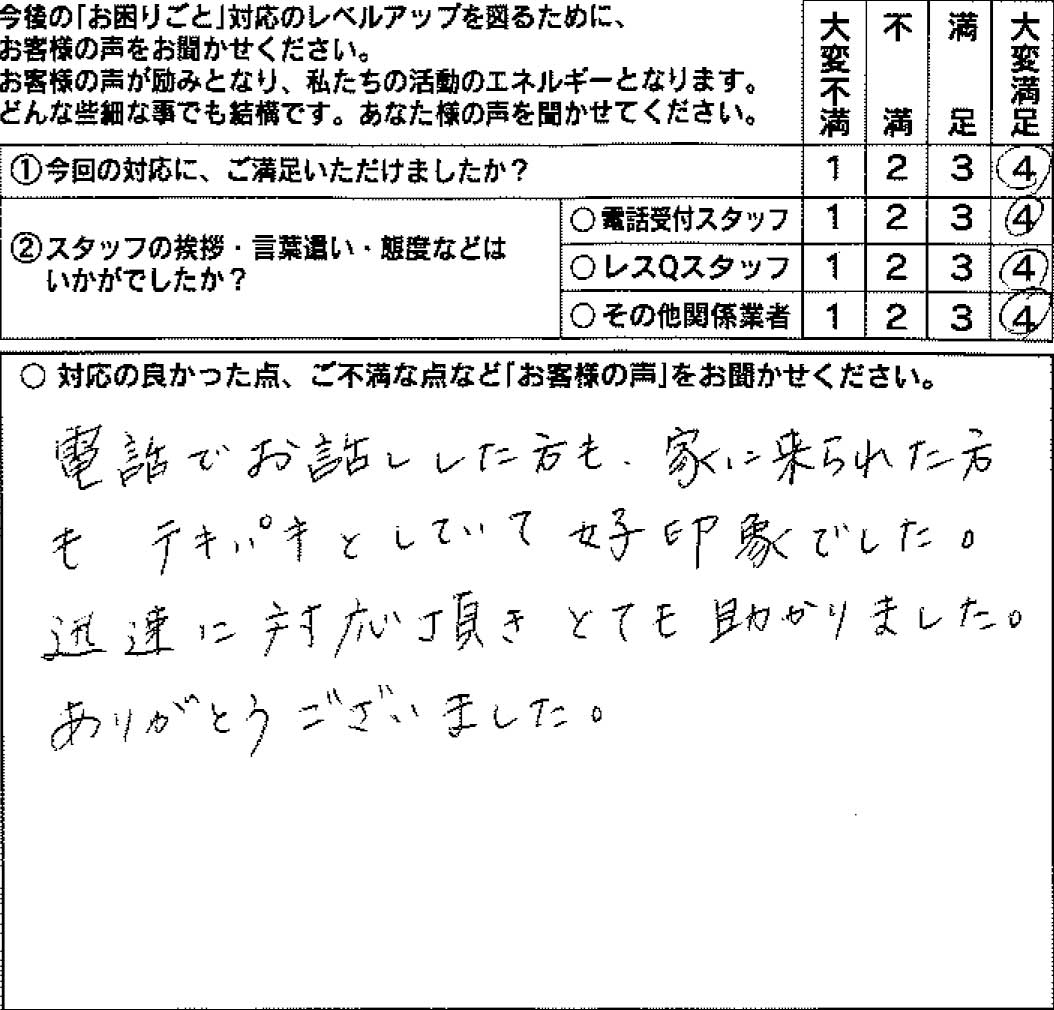 今後の「お困りごと」対応のレベルアップを図るために、
お客様の声をお聞かせください。
お客様の声が励みとなり、私たちの活動のエネルギーとなります。
どんな些細な事でも結構です。あなた様の声を聞かせてください。
大変不満 不満 満足 大変満足
①今回の対応に、ご満足いただけましたか？ 1 2 3 4
②スタッフの挨拶・言葉遣い・態度などは
いかがでしたか？
○電話受付スタッフ 1 2 3 4
○レスQスタッフ 1 2 3 4
○その他関係業者 1 2 3 4
○ 対応の良かった点、ご不満な点など「お客様の声」をお聞かせください。
電話でお話しした方も、家に来られた方
も テキパキとしていて好印象でした。
迅速に対応頂きとても助かりました。
ありがとうございました。